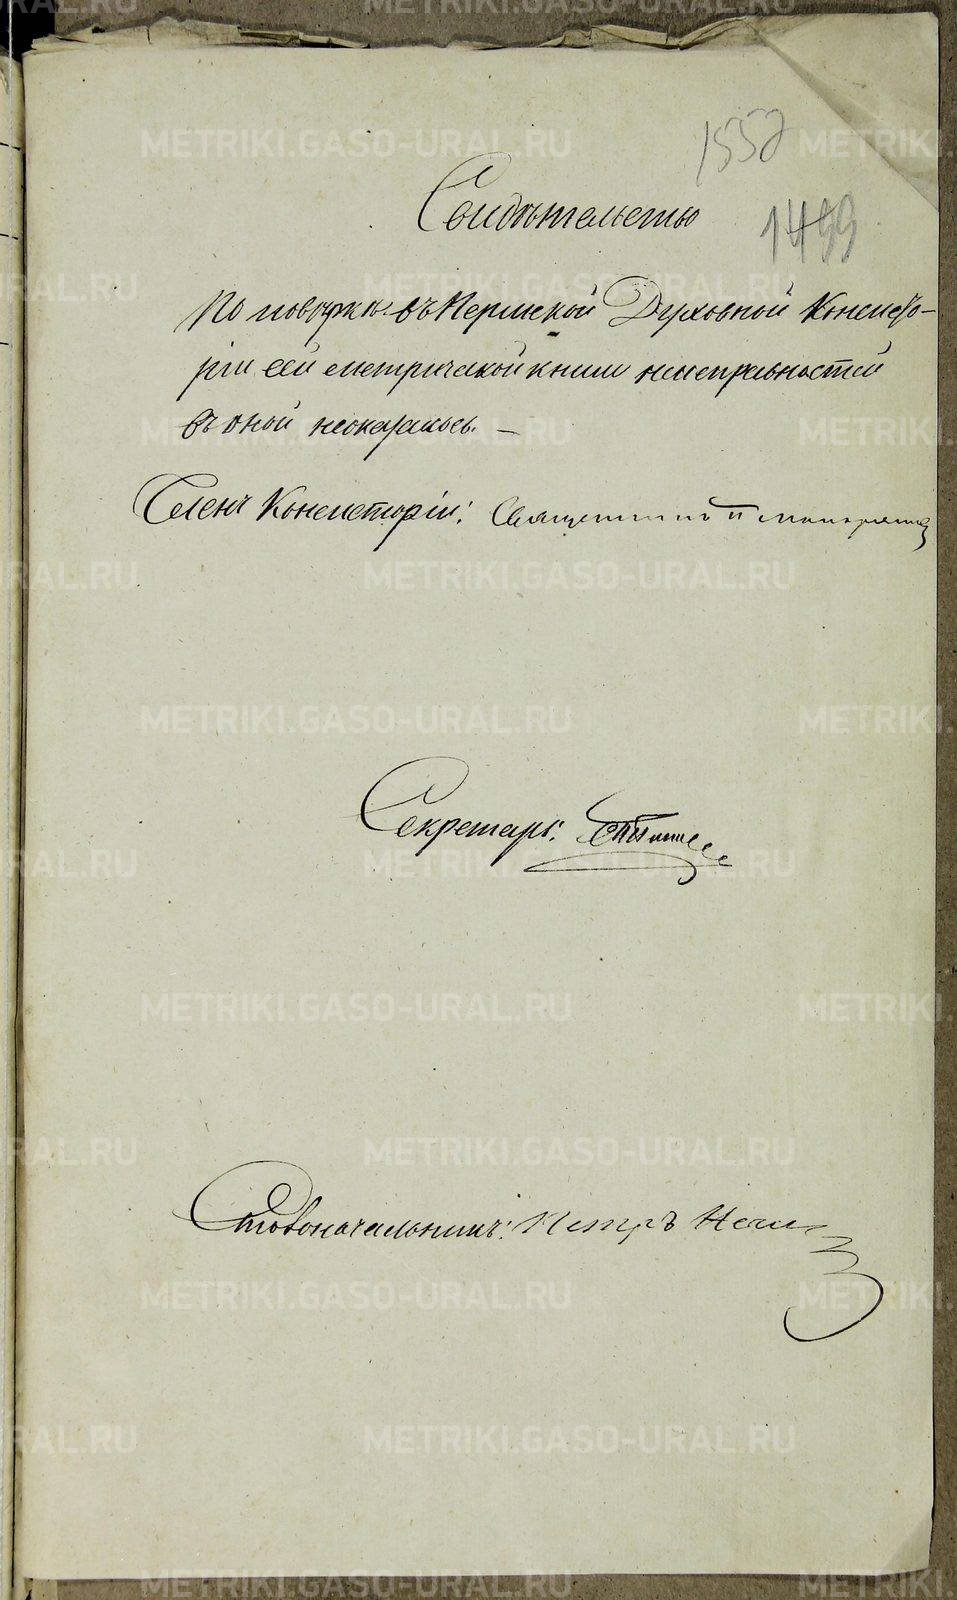 1552
Свидѣтельство
1499
По поверкѣ въ Пермской Духовной Консисто-
ріи сей метрической книги неисправностей
въ оной неоказалось. —
Членъ Консисторіи: Священникъ
Секретарь:
Столоначальникъ: Петръ
METRIKI.GASO-URAL.RU